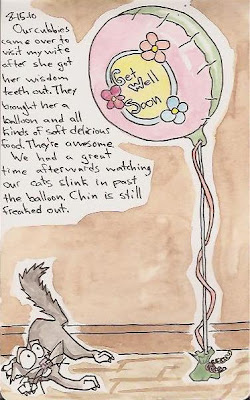 3-15-10
Our cubbies
came over to
visit my wife
after she got
her wisdom
teeth out. They
bought her a
balloon and all
kinds of soft delicious
food. They're awesome.
We had a great
time afterwards watching
our cats slink in past
the balloon. Chin is still
freaked out.
Get
Well
Soon